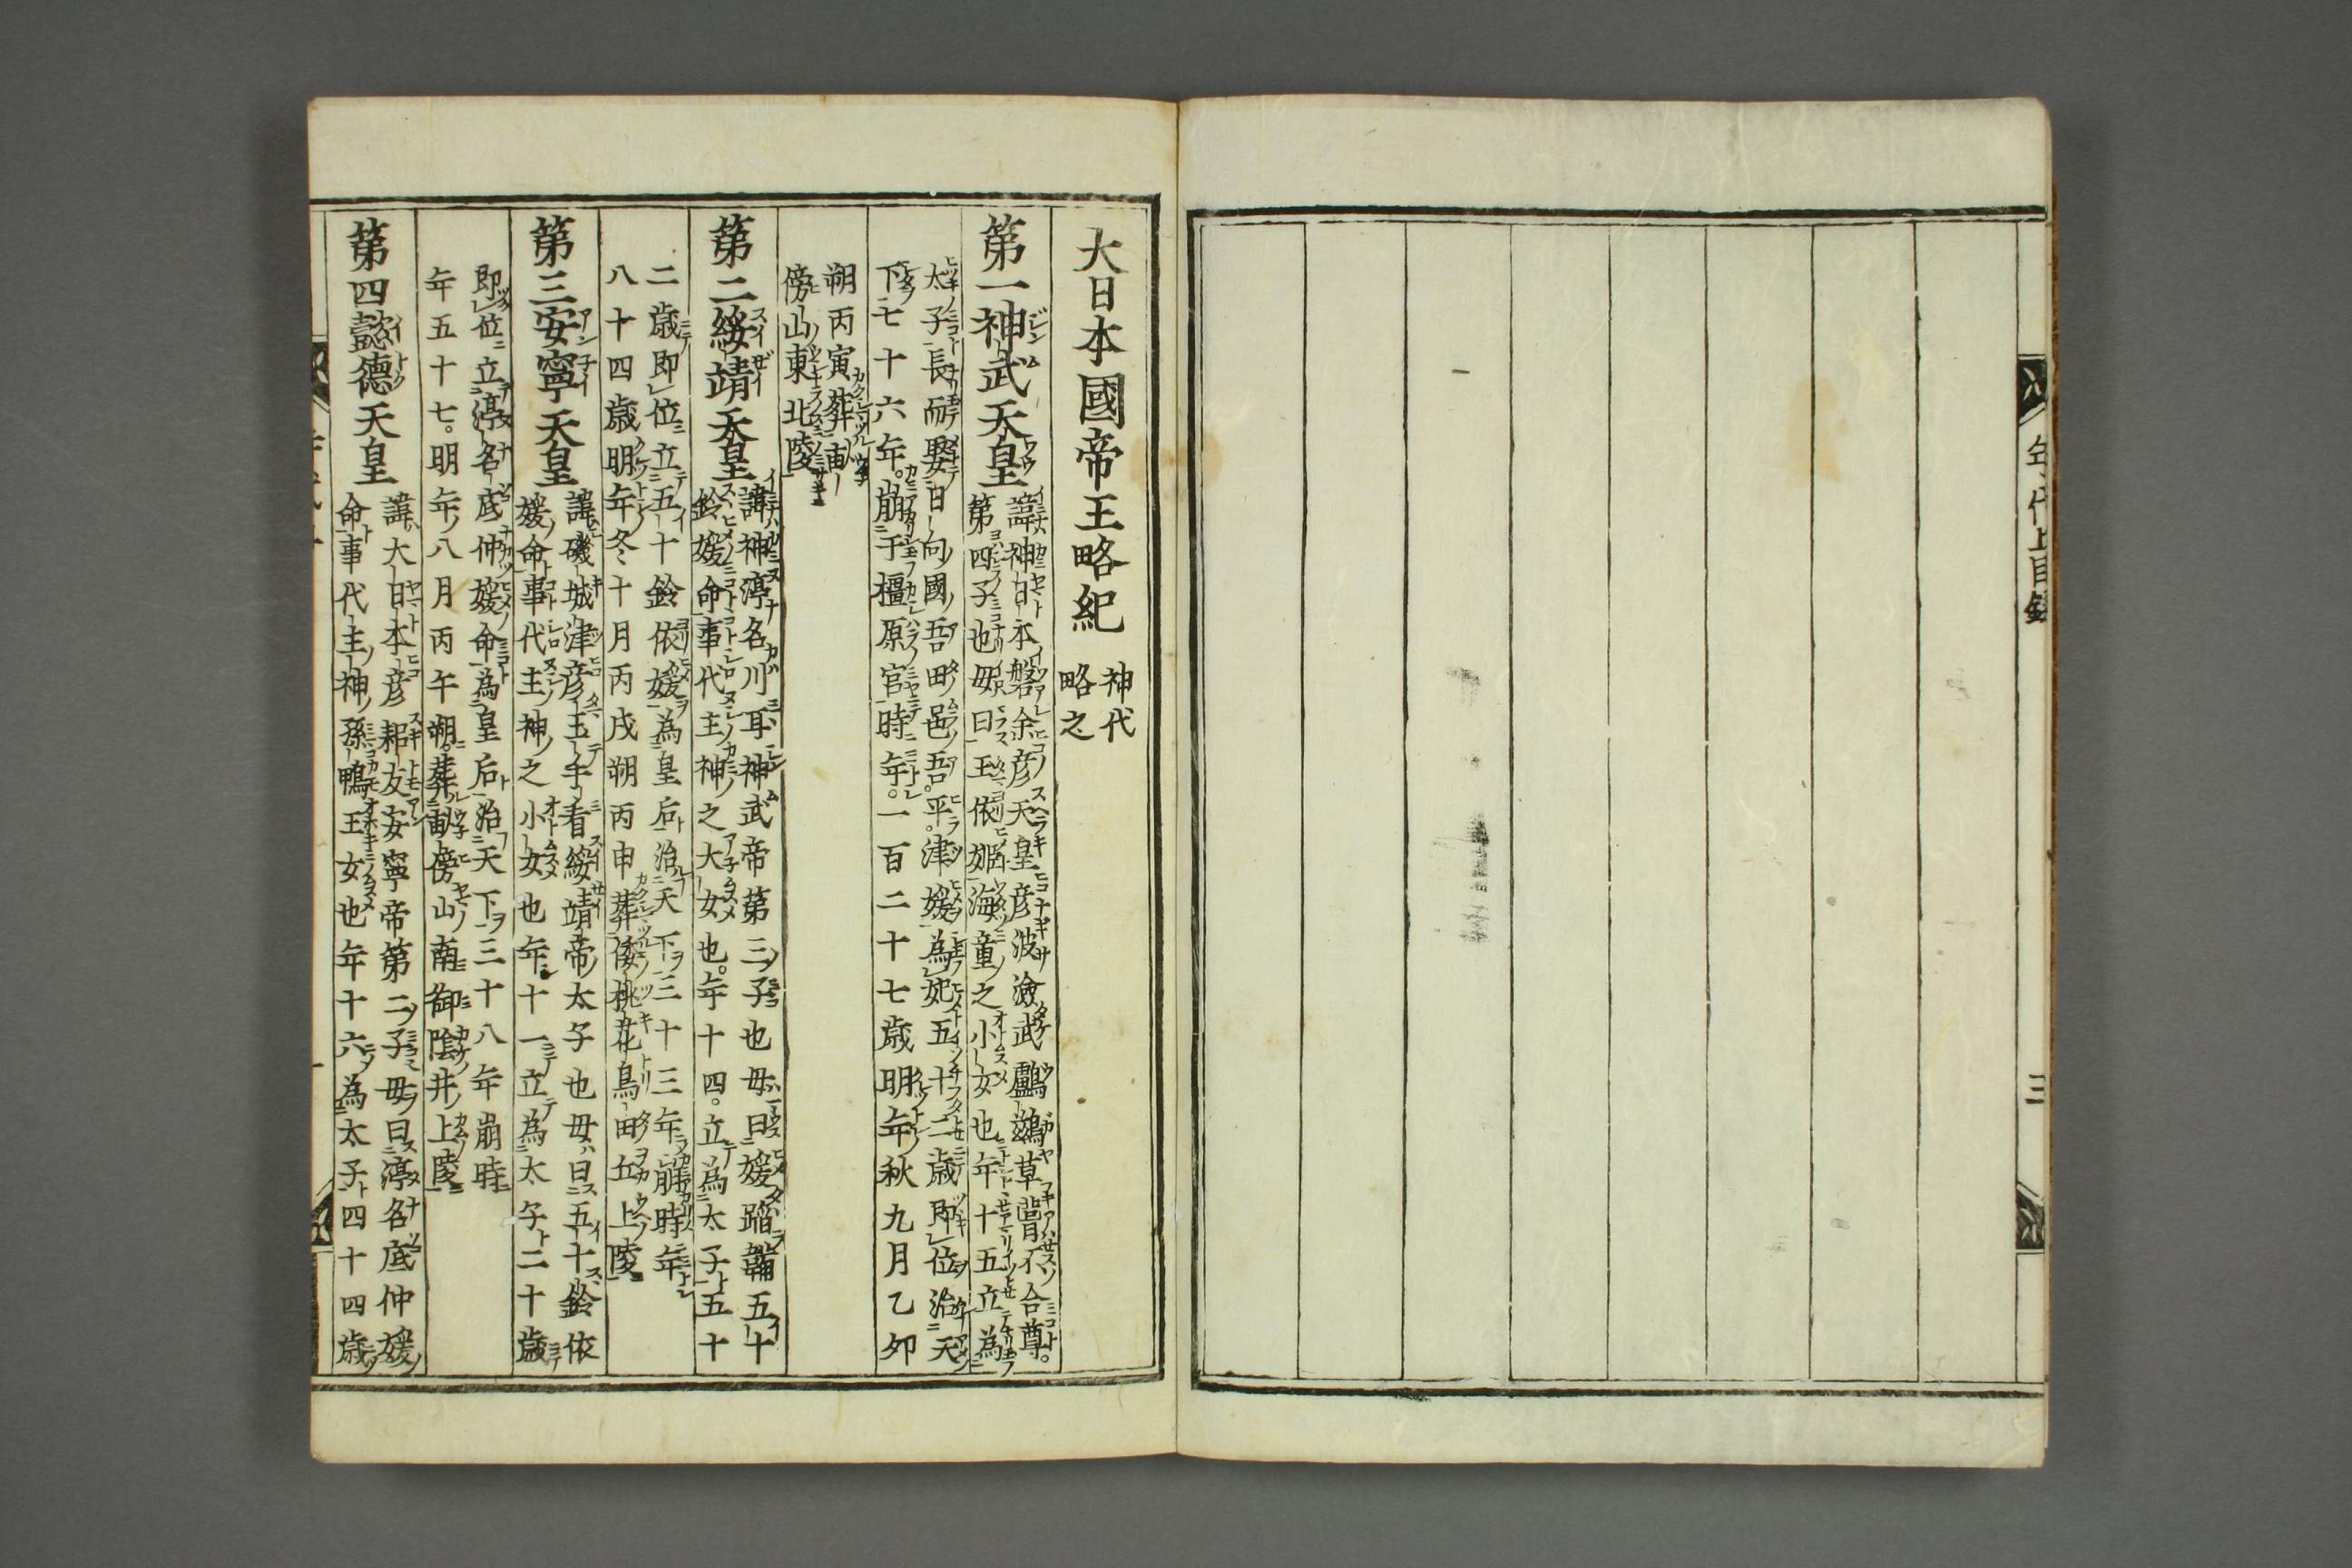 年代上目録
三
大日本國帝王略紀
神代
略之
第一神武天皇
諱神日本磐余彦天皇彦波瀲武鸕鶿草葺不合尊
第四子也母曰玉依姫海童之小女也年十五立為
太子長而娶日向國吾田邑吾平津媛為妃五十二歳即位治天
下七十六年崩于橿原宮時年一百二十七歳明年秋九月乙卯
朔丙寅葬畝
傍山東北陵
第二綏靖天皇
諱神渟名川耳神武帝第三子也母曰媛蹈鞴五十
鈴媛命事代主神之大女也年十四立為太子五十
二歳即位立五十鈴依媛為皇后治天下三十三年崩時年
八十四歳明年冬十月丙戌朔丙申葬倭桃花鳥田丘上陵
第三安寧天皇
諱磯城津彦玉手看綏靖帝太子也母曰五十鈴依
媛命事代主神之小女也年十一立為太子二十歳
即位立渟名底仲媛命為皇后治天下三十八年崩時
年五十七明年八月丙午朔葬畝傍山南御陰井上陵
第四懿德天皇
諱大日本彦耜友安寧帝第二子母曰渟名底仲媛
命事代主神孫鴨王女也年十六為太子四十四歳